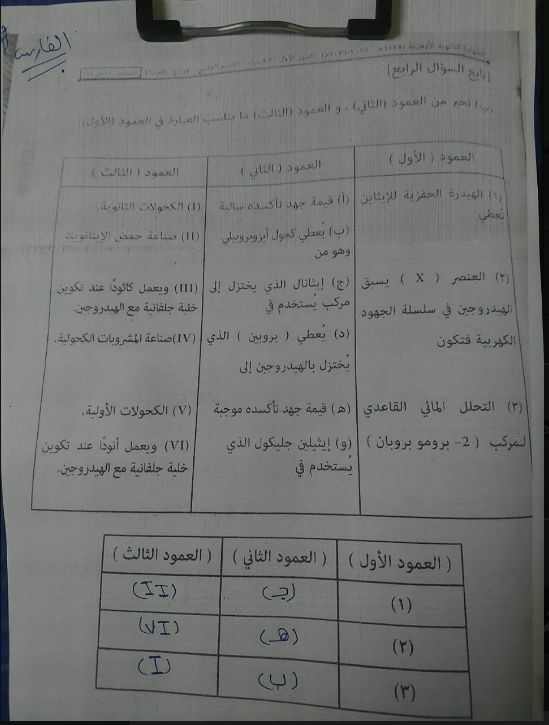 الفارس
(تابع السؤال الرابع):
(ب) تخير من العمود (الثاني) ، و العمود (الثالث) ما يناسب العبارة في العمود (الأول)
العمود ( الأول ) العمود ( الثاني ) العمود ( الثالث )
(١) الهيدرة الحفزية للإيثاين تُعطي
(٢) العنصر ( X ) يسبق
الهيدروجين في سلسلة الجهود
الكهربية فتكون
(٣) التحلل المائي القاعدي
لمركب ( 2- برومو بروبان )
(أ) قيمة جهد تأكسده سالبة
(ب) يُعطي كحول أيزوبروبيلي
وهو من
(ج) إيثانال الذي يختزل إلى
مركب يُستخدم في
(د) يُعطي ( بروبين ) الذي
يُختزل بالهيدروجين إلى
(هـ) قيمة جهد تأكسده موجبة
(و) إيثيلين جليكول الذي
يُستخدم في
(I) الكحولات الثانوية.
(II) صناعة حمض الإيثانويك.
(III) ويعمل كاثودًا عند تكوين
خلية جلفانية مع الهيدروجين.
(IV) صناعة المشروبات الكحولية.
(V) الكحولات الأولية.
(VI) ويعمل أنودًا عند تكوين
خلية جلفانية مع الهيدروجين.
( العمود الأول ) ( العمود الثاني ) ( العمود الثالث )
(١) (جـ) (II)
(٢) (هـ) (VI)
(٣) (ب) (I)